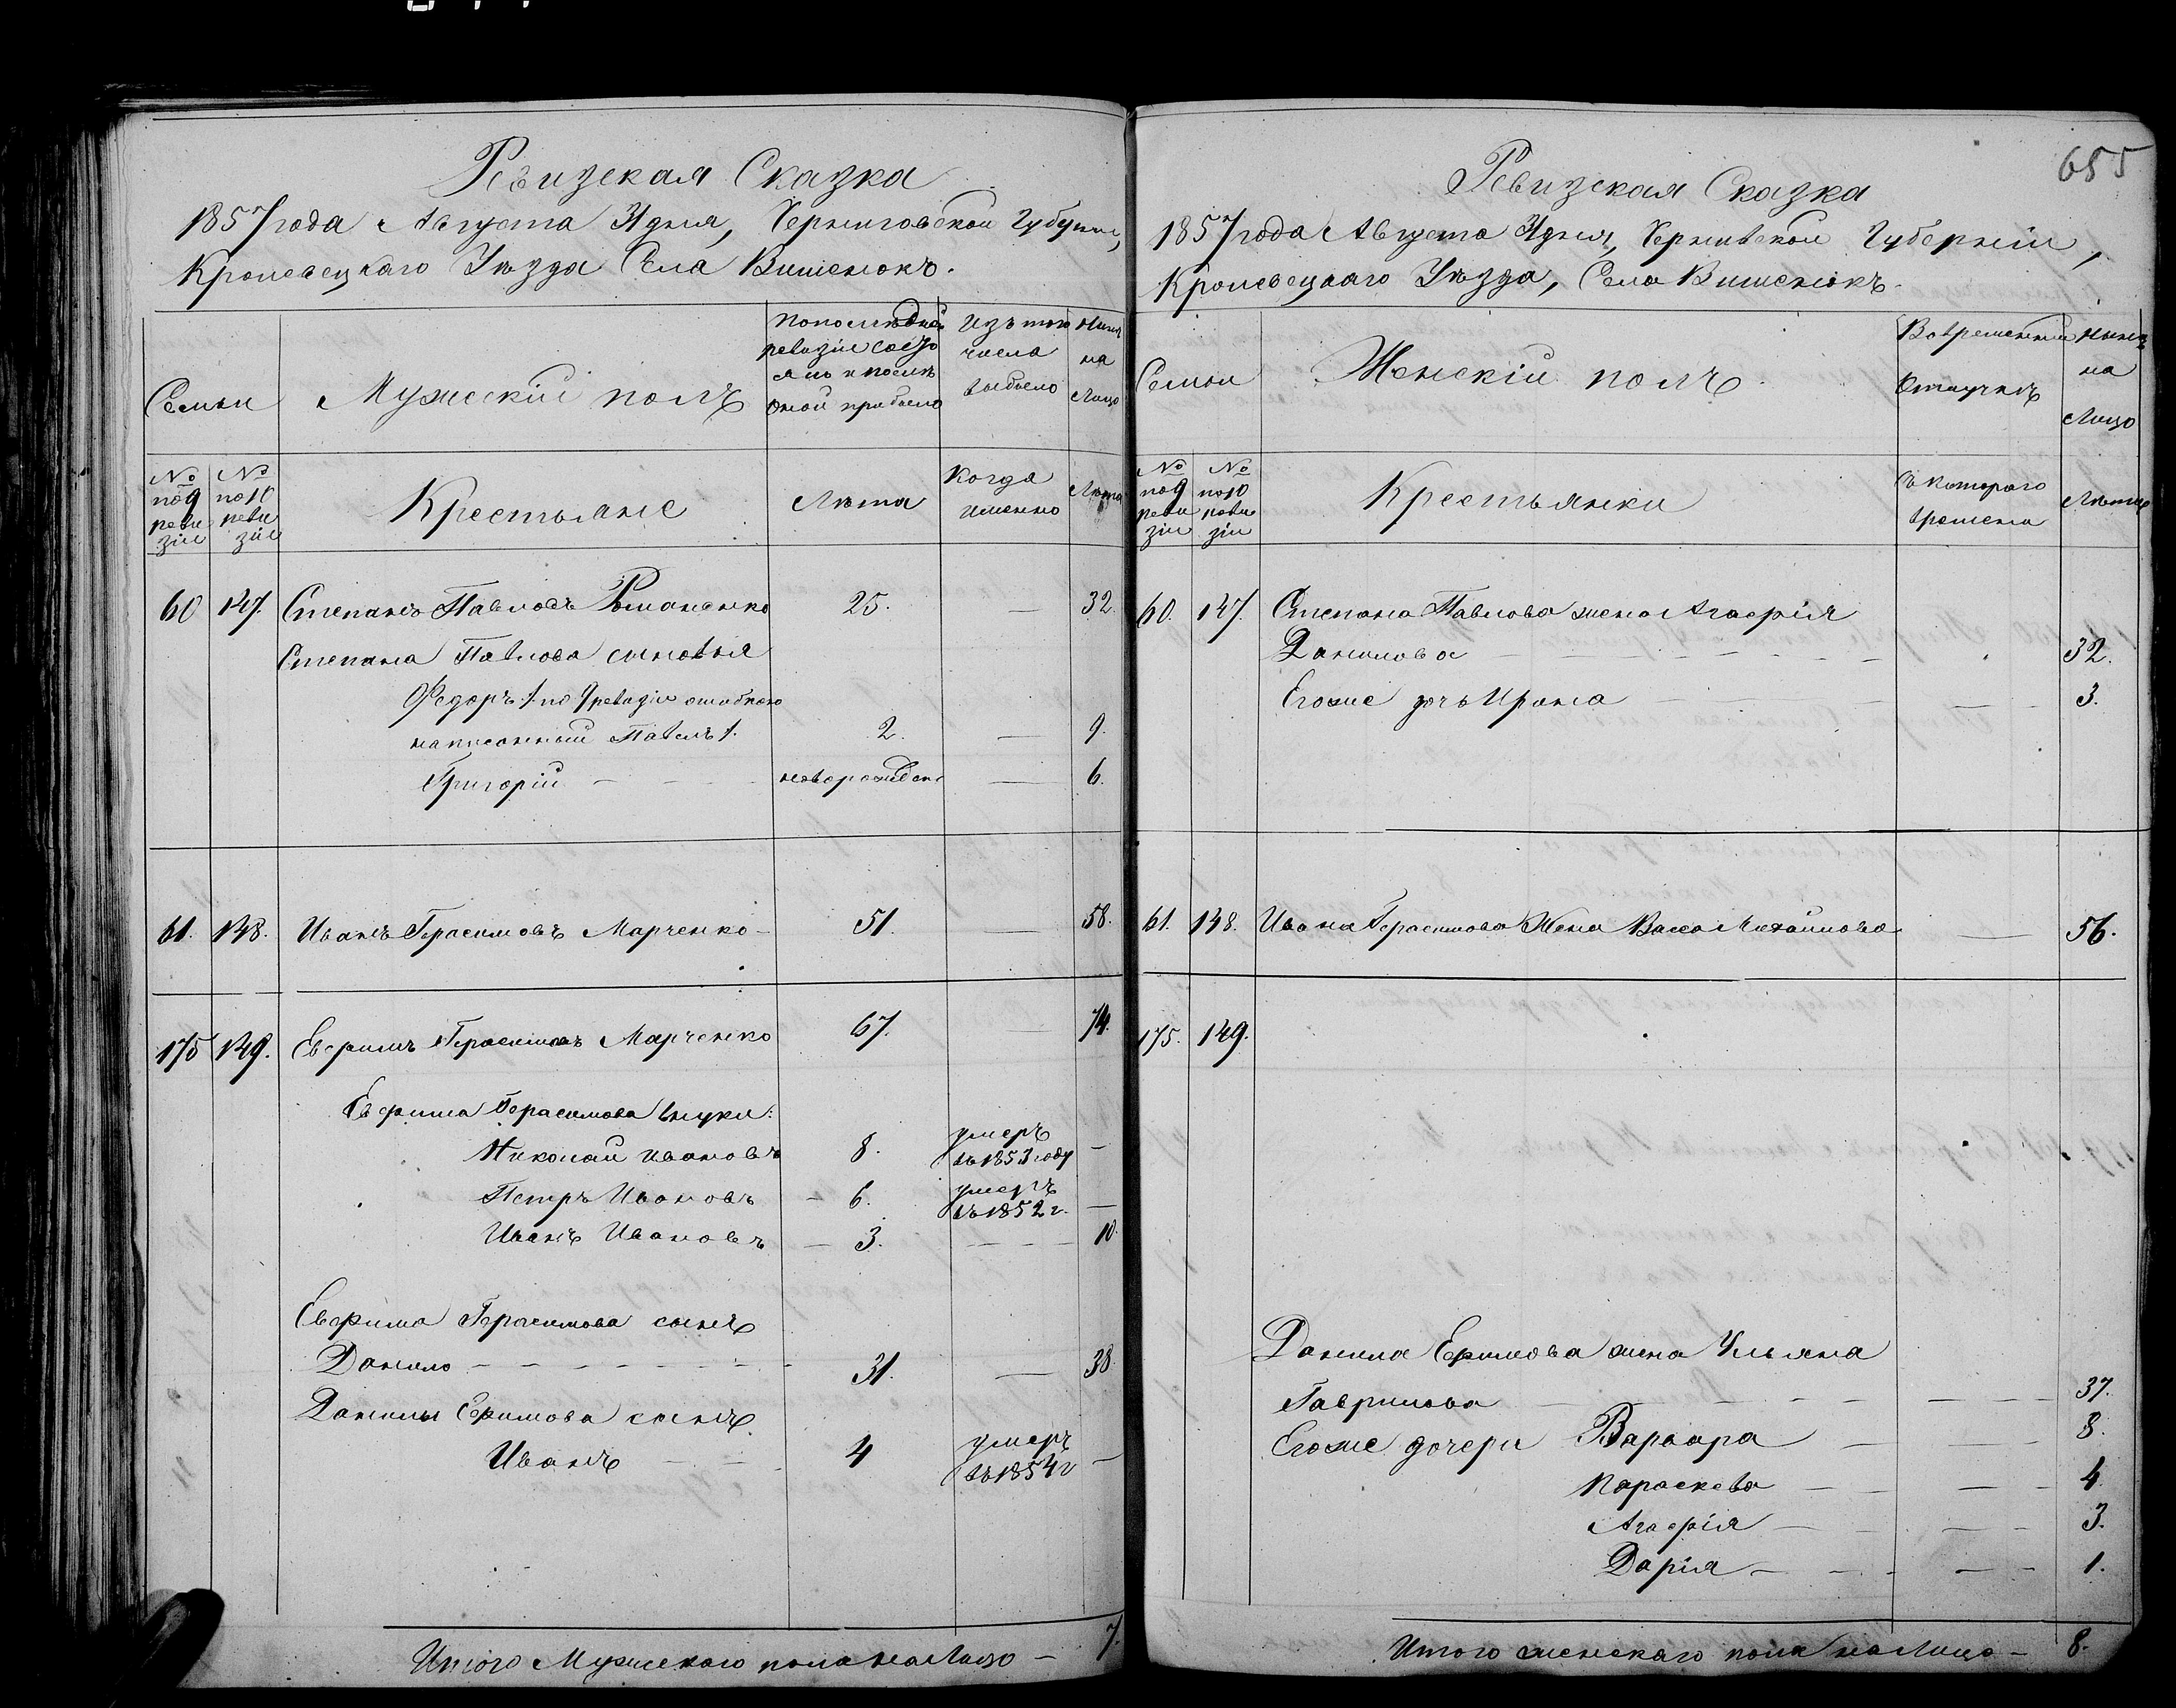 Ревизская Сказка
1857 года Августа 31 дня, Черниговской Губерніи,
Кролевецкаго Уѣзда Села Вишенокъ.
Семьи
Мужескій полъ
По послѣдней
ревизіи состо
ялъ и послѣ
оной прибыло
Изъ того
числа
выбыло
Нынѣ
на
Лицо
№
по 9
реви
зіи
№
по 10
реви
зіи
Крестьяне
Лѣта
Когда
именно
Лѣта
60 147. Степанъ Павловъ Романенко 25. — 32.
Степана Павлова сыновья
Федоръ /. по 9 ревизіи ошибкою
написанный Павелъ /. 2. — 9.
Григорій — новорожден — 6.
61. 148. Иванъ Герасимовъ Марченко - 51. — 58.
175 149. Евфимъ Герасимовъ Марченко 67. — 74.
Евфима Герасимова внуки:
Николай Ивановъ 8. умеръ въ 1853 году —
Петръ Ивановъ — 6. умеръ въ 1852 г. —
Иванъ Ивановъ — 3. — 10.
Евфима Герасимова сынъ
Данило — 31. — 38.
Данилы Ефимова сынъ
Иванъ — 4 умеръ въ 1854 г —
Итого Мужескаго пола на Лицо — 7.
655
Ревизская Сказка
1857 года Августа 31 дня, Чернивской Губерніи,
Кролевецкаго Уѣзда, Села Вишенокъ.
Семьи
Женскій полъ
Во временной
Отлучкѣ
Нынѣ
на
Лицо
№
по 9
реви
зіи
№
по 10
реви
зіи
Крестьянки
Съ котораго
времени
Лѣта
60. 147. Степана Павлова жена Агафія
Данилова — 32.
Егоже дочь Ирина — 3.
61. 148. Ивана Герасимова Жена Васса Михайлова — 56.
175. 149.
Данила Ефимова жена Ульяна
Гаврилова — 37.
Егоже дочери Варвара — 8.
Параскева — 4.
Агафія — 3.
Дарія — 1.
Итого женскаго пола на Лицо — 8.